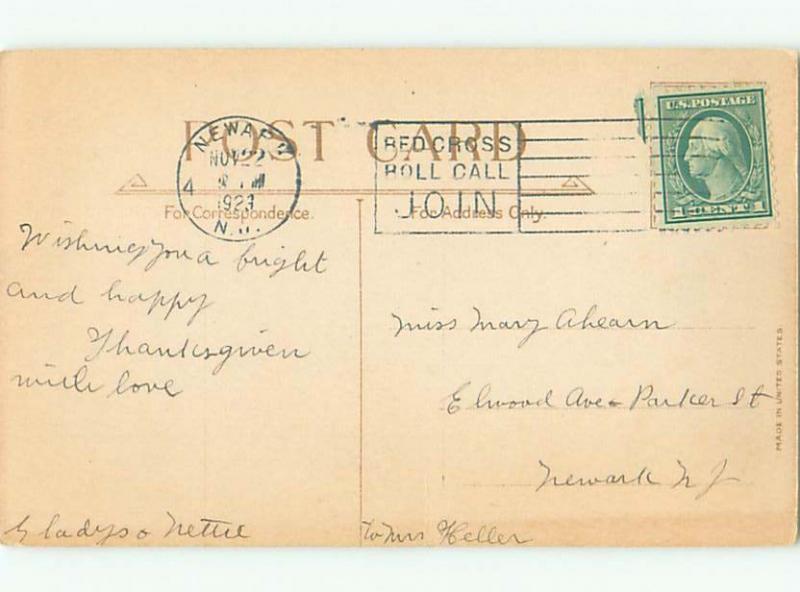 POST CARD
NEWARK
NOV 22
4
1923
N.J.
RED CROSS
ROLL CALL
JOIN
U.S. POSTAGE
1 CENT 1
For Correspondence.
For Address Only.
Wishing you a bright
and happy
Thanksgiven
with love
Gladys & Nettie
Miss Mary Ahearn
Elwood Ave & Parker St
Newark N J
To Mrs Heller
MADE IN UNITED STATES